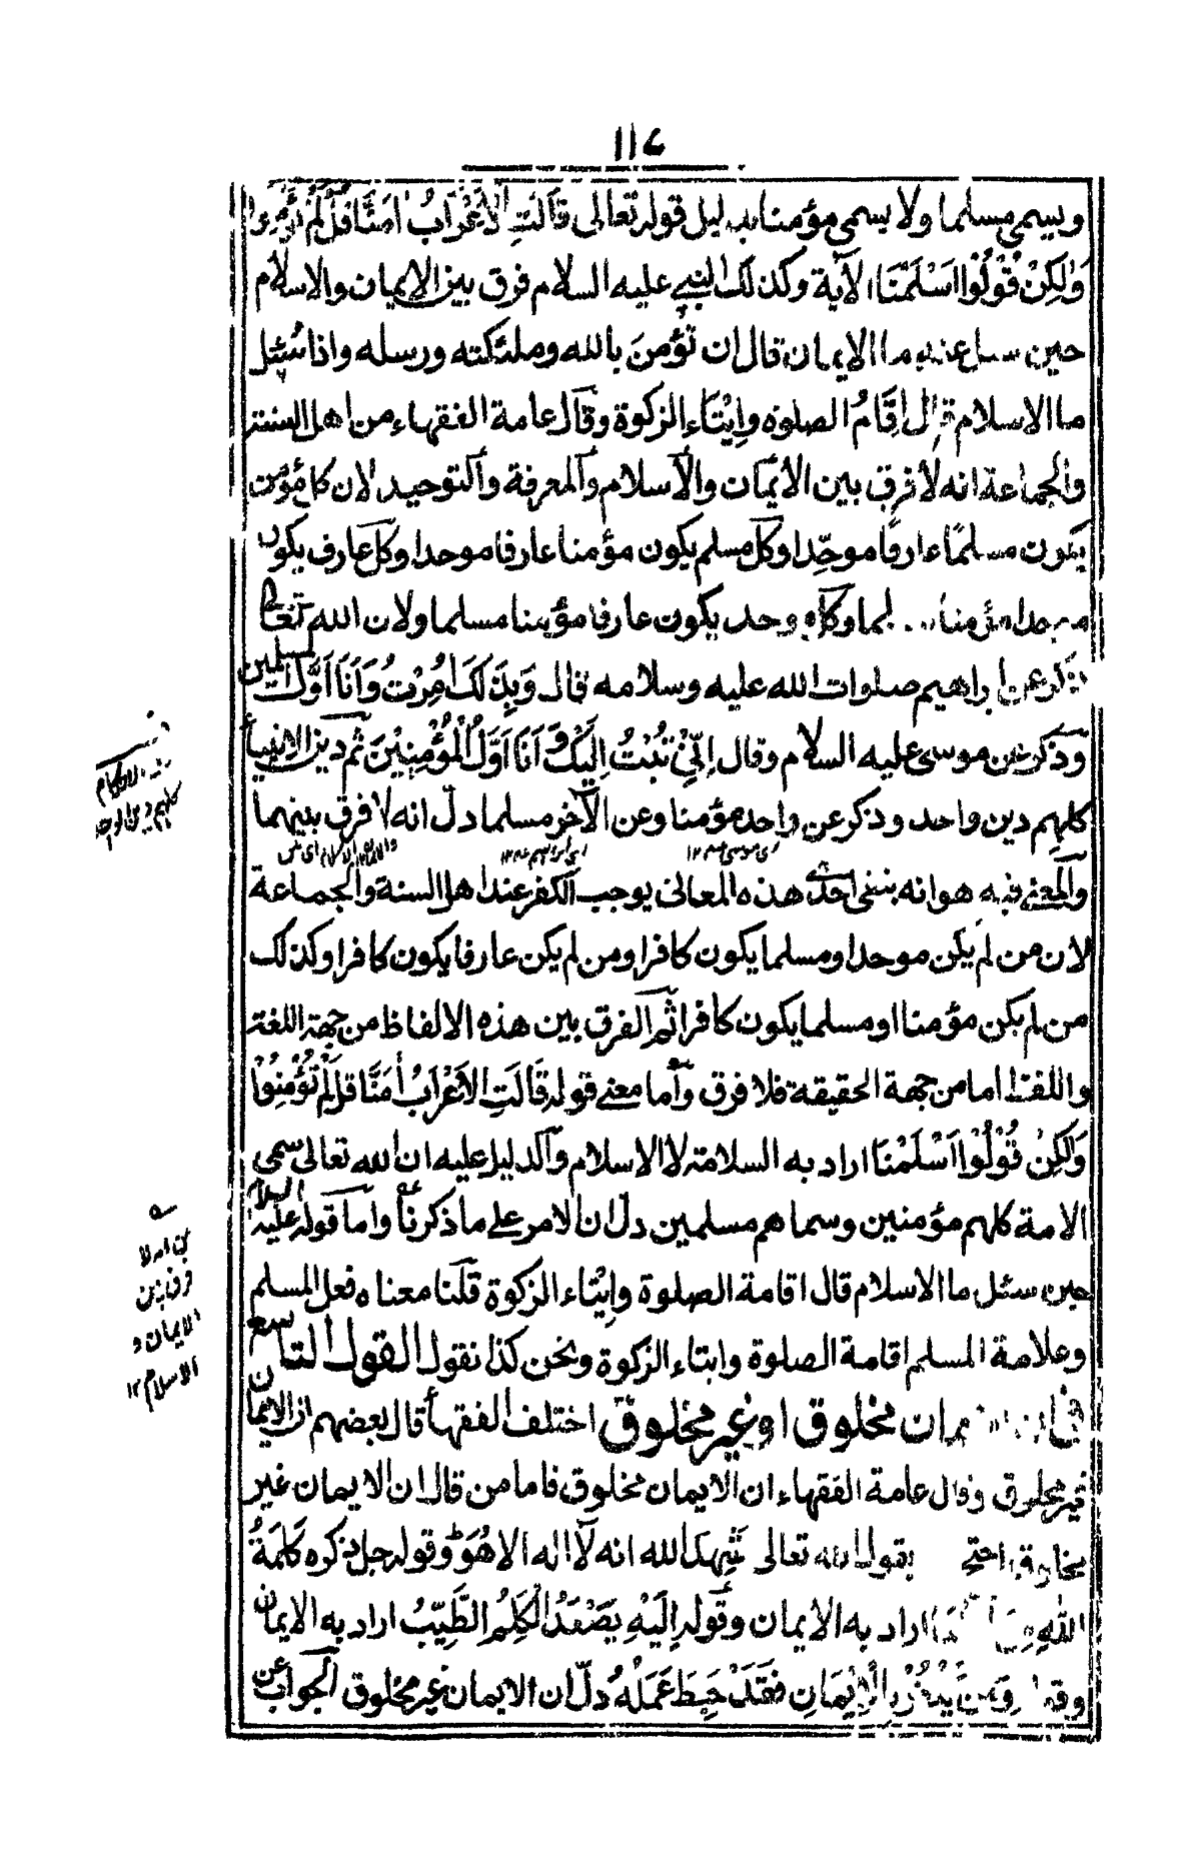 ١١٧
ويسمى مسلما ولا يسمى مؤمنا بدليل قوله تعالى قَالَتِ الْاَعْرَابُ اٰمَنَّا قُلْ لَمْ تُؤْمِنُوا
وَلٰكِنْ قُوْلُوْا اَسْلَمْنَا الآية وكذلك النبي عليه السلام فرق بين الايمان والاسلام
حين سئل عنه ما الايمان قال ان تؤمن بالله وملئكته ورسله واذا سُئِل
ما الاسلام قال اِقَامُ الصلوة واِيْتَاء الزكوة وقال عامة الفقهاء من اهل السنة
والجماعة انه لا فرق بين الايمان والاسلام والمعرفة والتوحيد لان كل مؤمن
يكون مسلمًا عارفًا موحِّدا وكل مسلم يكون مؤمنا عارفا موحدا وكل عارف يكون
موحدا مؤمنا لما وكل موحد يكون عارفا مؤمنا مسلما ولان الله تعالى
ذكر عن ابراهيم صلوات الله عليه وسلامه قال وَبِذٰلِكَ اُمِرْتُ وَاَنَا اَوَّلُ المسلمين
وذكر عن موسى عليه السلام وقال اِنِّيْ تُبْتُ اِلَيْكَ وَ اَنَا اَوَّلُ الْمُؤْمِنِيْنَ ثم دين الانبياء
كلهم دين واحد وذكر عن واحد مؤمنا وعن الآخر مسلما دلّ انه لا فرق بينهما
اى موسى ١٢ اى ابراهيم ١٢
والمعنى فيه هو انه بنفى احد هذه المعانى يوجب الكفر عند اهل السنة والجماعة
لان من لم يكن موحدا ومسلما يكون كافرا ومن لم يكن عارفا يكون كافرا وكذلك
من لم يكن مؤمنا او مسلما يكون كافرا ثم الفرق بين هذه الالفاظ من جهة اللغة
واللفظ اما من جهة الحقيقة فلا فرق واما معنى قوله قَالَتِ الْاَعْرَابُ اٰمَنَّا قل لَمْ تُؤْمِنُوْا
وَلٰكِنْ قُوْلُوْا اَسْلَمْنَا اراد به السلامة لا الاسلام والدليل عليه ان الله تعالى سمى
الامة كلهم مؤمنين وسماهم مسلمين دل ان الامر على ما ذكرنا واما قوله عليه السلام
حين سئل ما الاسلام قال اقامة الصلوة وايتاء الزكوة قلنا معناه فعل المسلم
وعلامة المسلم اقامة الصلوة وايتاء الزكوة ونحن كذا نقول القول التاسع
فى ان الايمان مخلوق او غير مخلوق اختلف الفقهاء قال بعضهم ان الايمان
غير مخلوق وقال عامة الفقهاء ان الايمان مخلوق فاما من قال ان الايمان غير
مخلوق احتج بقول الله تعالى شَهِدَ الله انه لا اله الا هُوَ وقوله جل ذكره كَلِمَةُ
اللهِ اراد به الايمان وقوله اِلَيْهِ يَصْعَدُ الْكَلِمُ الطَّيِّبُ اراد به الايمان
وقوله وَمَن يَّكْفُرْ بِالْاِيْمَانِ فَقَدْ حَبِطَ عَمَلُهُ دلّ ان الايمان غير مخلوق الجواب عن
كلهم دين واحد
فرق بين
الايمان و
الاسلام ١٢